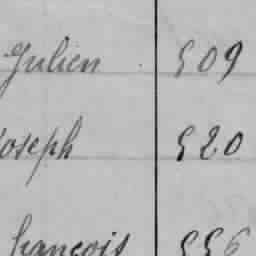 Julien 509
Joseph 520
François 556